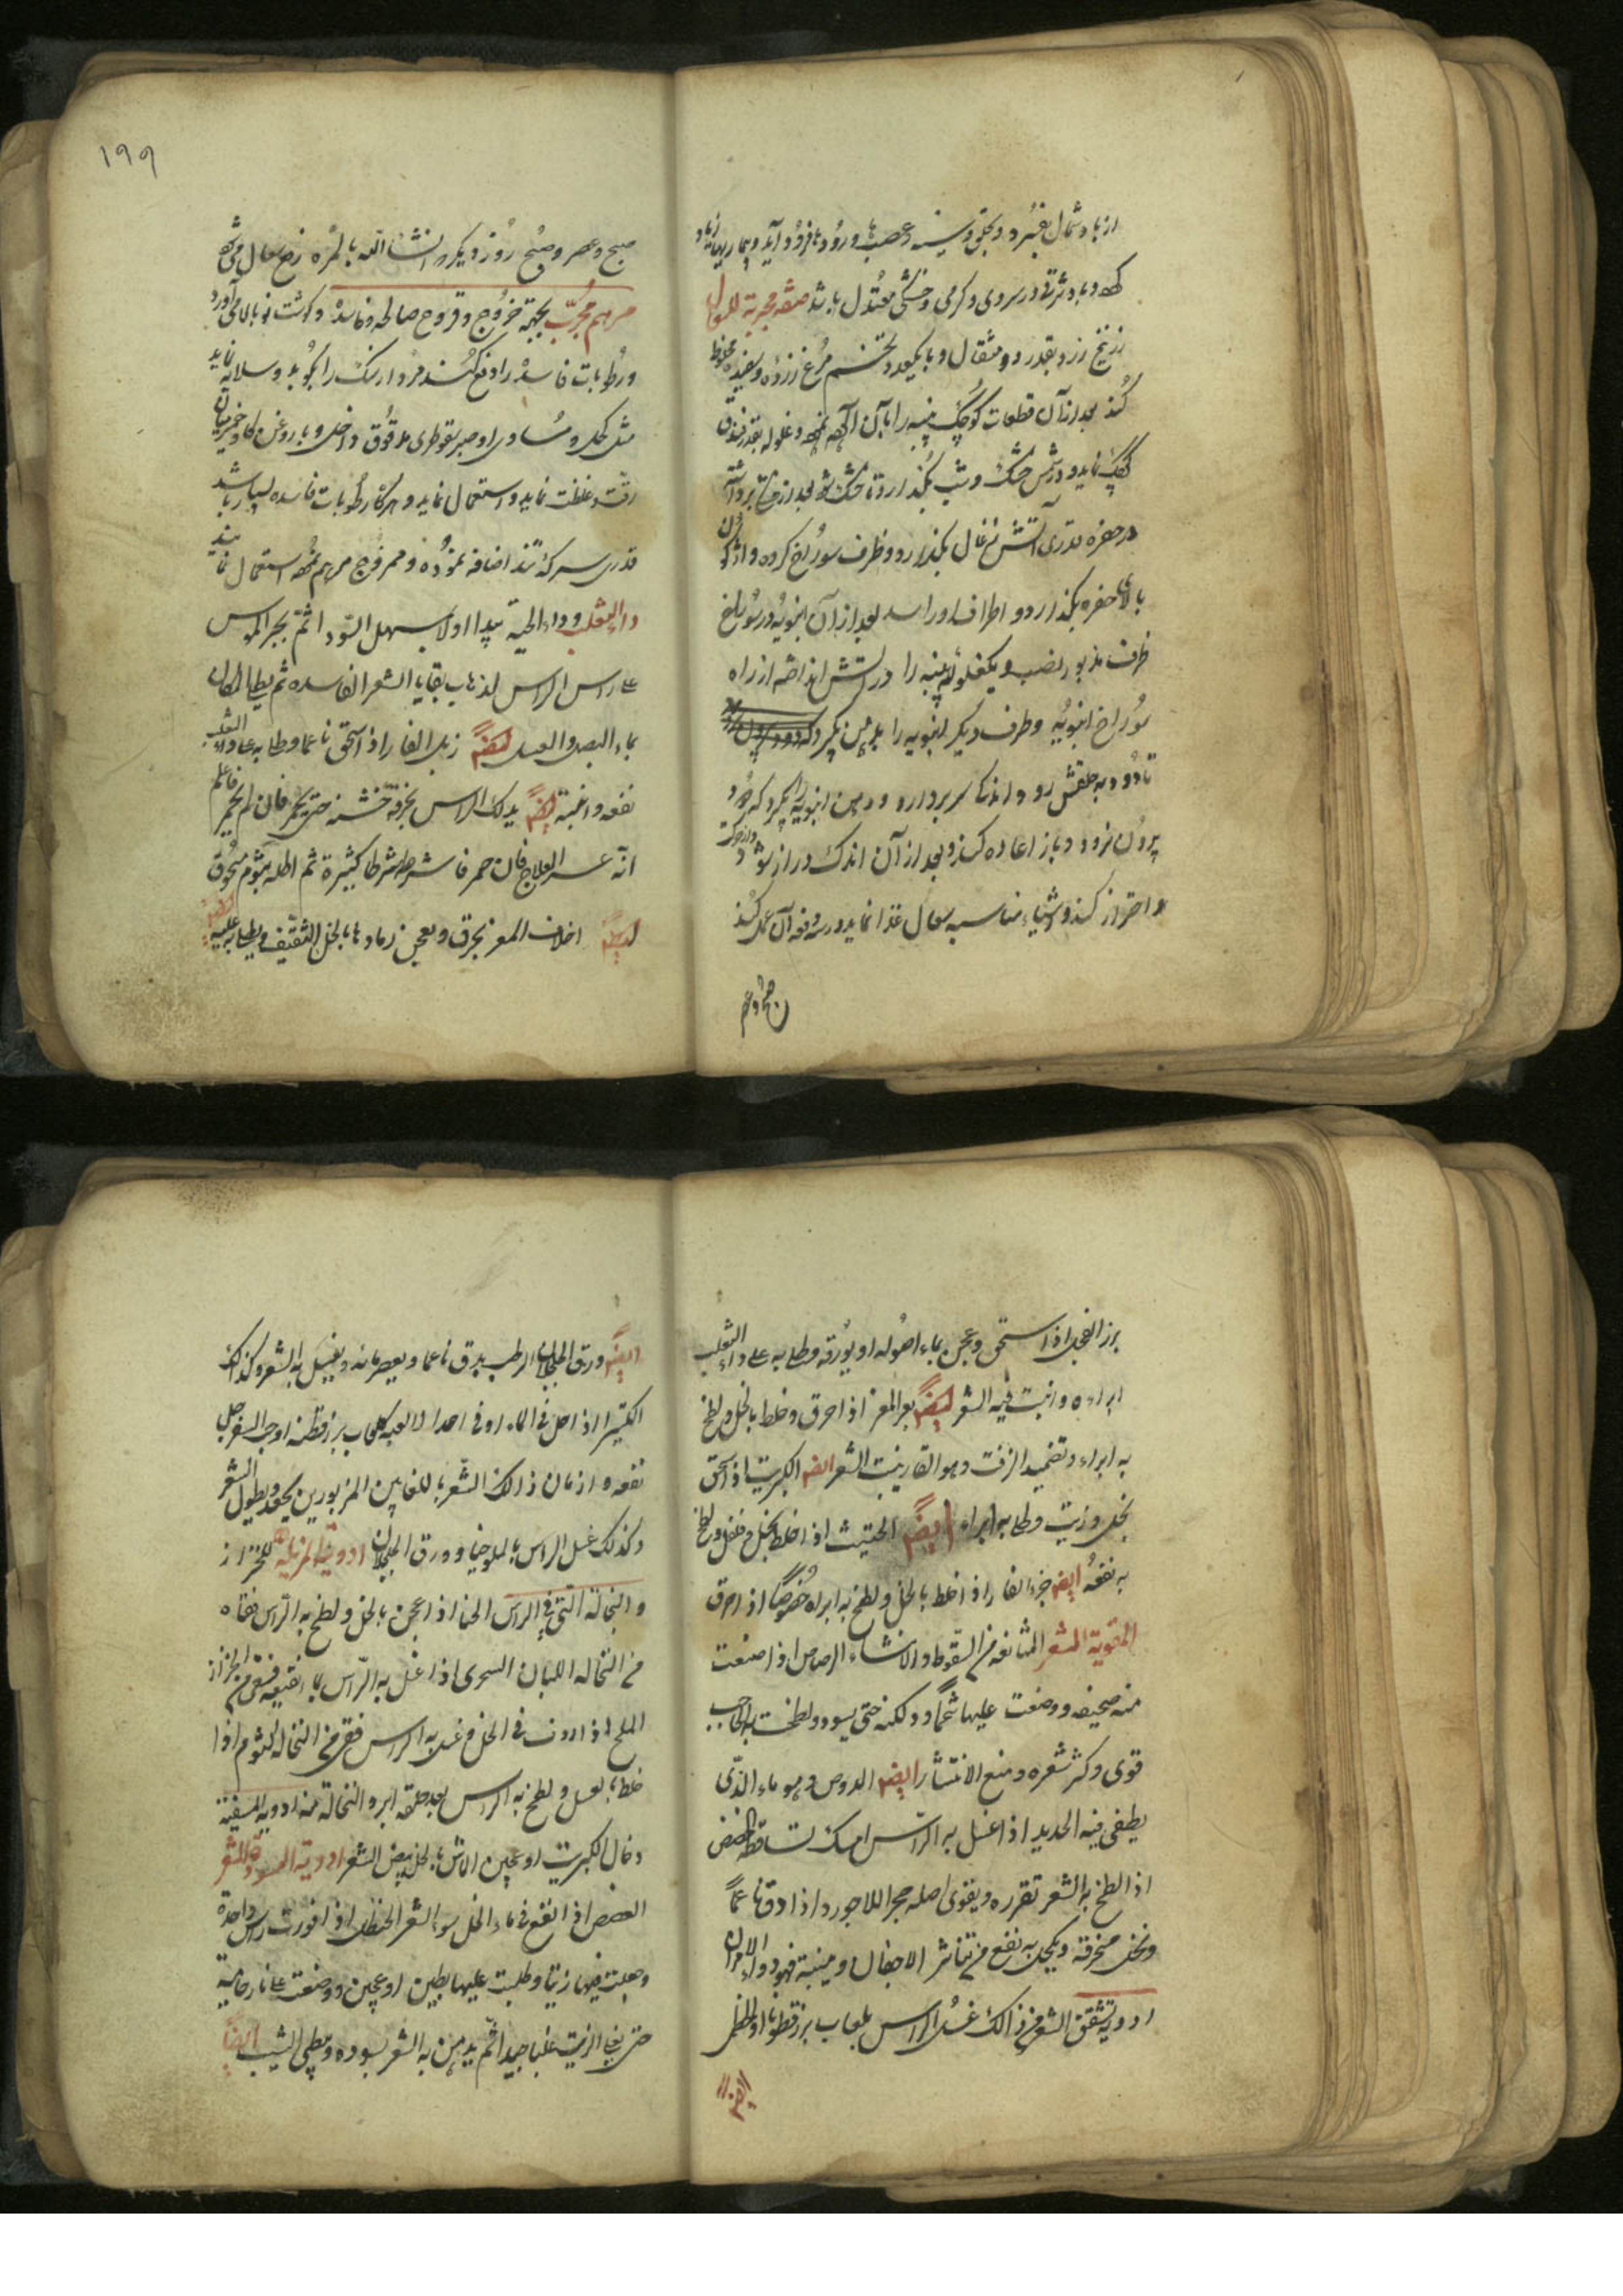 از باد شمال خیزد و بحلق و سینه و عصبها و رودها فرود آید و بیماریها
و باد شرقی در سردی و گرمی و خشکی معتدل باشد صفة مجربة للسعال
زرنیخ زرد بقدر دو مثقال و با یکعدد تخم مرغ زرده و سفیده مخلوط
کند بعد از آن قطعات کوچک پنبه را با آن و غلوله بقدر فندق
کوچک نماید و در شمس خشک و شب بگذارد تا خشک شود بعد از برداشته
در حفره قدری آتش زغال بگذارد و ظرف سوراخ کرده واژگون
بالای حفره بگذارد و اطراف او را بعد از آن انبوبه در سوراخ
ظرف مذبور نصب و یکغلوله پنبه را در آتش انداخته از راه
سوراخ انبوبه و طرف دیگر انبوبه را بدهن بگیرد
تا دود به حلقش رود و اندک سر بردارد و دهن انبوبه را بگیرد که دود
بیرون نرود و باز اعاده کند و بعد از آن اندک دراز شود
و احتراز کند و اشیاء مناسبه سعال غذا نماید و سه دفعه آن عمل کند
صبح و عصر
١٩٩
صبح و عصر و صبح روز دیگر انشاء الله بالمره رفع سعال می‌شود
مرهم مجرب بجهة خروج و قروح صالحه و فاسده و گوشت نو بالا می‌آورد
و رطوبات فاسده را دفع کند مردارسنگ را بکوبد و سلایه نماید
مثل کحل و مساوی او صبر سقوطری مدقوق داخل و با روغن گاو
رقت و غلظت نماید و استعمال نماید و هرگاه رطوبات فاسده بسیار باشد
قدری سرکه تند اضافه نموده و ممزوج مرهم استعمال نمایند
داء الثعلب و داء الحیة یبدا اولا بسهل السودا ثم بحجر الموس
علی راس الراس لذهاب بقایا الشعر الفاسده ثم یطلا المکان
بماء البصل و العسل ایضا زبل الفار اذا سحق ناعما و طلا به علی داء الثعلب
نفعه و انبته ایضا یدلک الراس بخرقة خشنه حتی یحمر فان لم یحمر فاعلم
انه عسر العلاج فان حمر فاشرطه شرطا کثیرة ثم اطله بثوم مسحوق
ایضا اظلاف المعز یحرق و یعجن رمادها بالخل الثقیف و یطلا به علیه
بزر الفجل اذا سحق و عجن بماء اصوله او بورقه و طلا به علی داء الثعلب
ابراءه و انبت فیه الشعر ایضا بعر المعز اذا احرق و خلط بالخل و لطخ
به ابراء و تضمید الزفت و هو القار ینبت الشعر ایضا الکبریت اذا سحق
بخل و زیت و طلا به ابراء ایضا الحلتیت اذا خلط بخل و فلفل و لطخ
به نفعه ایضا خرء الفار اذا خلط بالخل و لطخ به ابراه خصوصا اذا احرق
المقویة للشعر المانعه من السقوط و الانتشار الرصاص اذا صنعت
منه صحیفه و وضعت علیها شحما و دلکته حتی یسود و لطخت به الحاجب
قوی و کثر شعره و منع الانتثار ایضا الدوص و هو ماء الذی
یطفی فیه الحدید اذا غسل به الراس امسک تساقطه الحضض
اذا لطخ به الشعر تقرره و یقوی اصله حجر اللاجورد اذا دق ناعما
و نخل بخرقة و یکحل به نفع من تناثر الاجفان و ینبته فهو دواء الامران
ادویة تشقق الشعر من ذالک غسل الراس بلعاب بزرقطونا او الخطمی
ایضا
ایضا ورق الجلجلان الرطب یدق ناعما و یعصر مائه و یغسل به الشعر و کذلک
الکثیرا اذا حل فی الماء او فی احدا لالعبه کلعاب بزرقطنه او حب السفرجل
نفعه و ادهان ذالک الشعر باللعابین المزبورین یجعد و یطول الشعر
و کذلک غسل الراس بالملوخیا و ورق الجلجلان ادویة المزیلة للحزاز
و النخالة التی فی الراس الحنا اذا عجن بالخل و لطخ به الراس نقاه
من النخاله اللبان السحری اذا غسل به الراس بماء نقیعه فنقی من الحزاز
الملح اذا ذوب فی الخل و غسل به الراس فنقی من النخالة الثوم اذا
خلط بالعسل و لطخ به الراس بعد حلقه ابرء النخالة منه ادویة المبیضة
دخان الکبریت او عجین الاش بالخل یبیض الشعر ادویة المسودة للشعر
العفص اذا انقع فی ماء الخل سود الشعر الحنظل اذا قورت راس واحدة
و جعلت فیها زیتا و طلیت علیها بطین او عجین و وضعت علی نار حامیة
حتی یغلی الزیت غلیا جیدا ثم یدهن به الشعر یسوده و یبطی الشیب ایضا